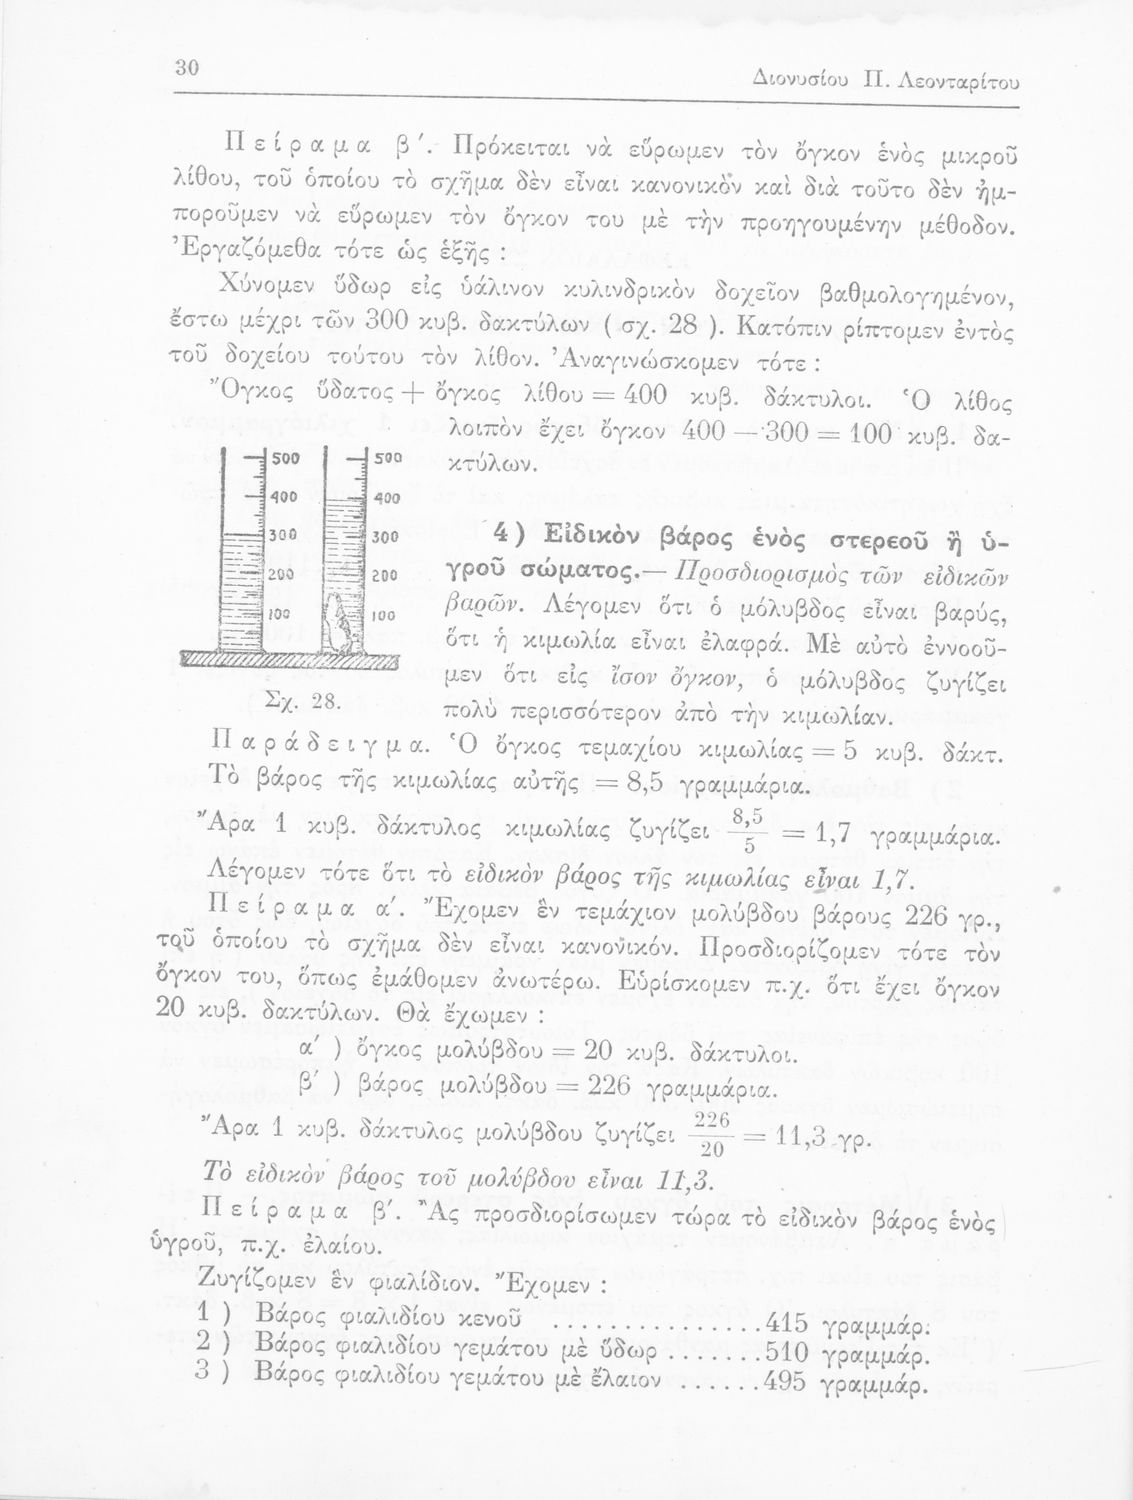 30
Διονυσίου Π. Λεονταρίτου
Πείραμα β΄. Πρόκειται νὰ εὕρωμεν τὸν ὄγκον ἑνὸς μικροῦ
λίθου, τοῦ ὁποίου τὸ σχῆμα δὲν εἶναι κανονικὸν καὶ διὰ τοῦτο δὲν ἠμ-
ποροῦμεν νὰ εὕρωμεν τὸν ὄγκον του μὲ τὴν προηγουμένην μέθοδον.
Ἐργαζόμεθα τότε ὡς ἑξῆς :
Χύνομεν ὕδωρ εἰς ὑάλινον κυλινδρικὸν δοχεῖον βαθμολογημένον,
ἔστω μέχρι τῶν 300 κυβ. δακτύλων ( σχ. 28 ). Κατόπιν ρίπτομεν ἐντὸς
τοῦ δοχείου τούτου τὸν λίθον. Ἀναγινώσκομεν τότε :
Ὄγκος ὕδατος + ὄγκος λίθου = 400 κυβ. δάκτυλοι. Ὁ λίθος
λοιπὸν ἔχει ὄγκον 400 — 300 = 100 κυβ. δα-
κτύλων.
500 500
400 400
300 300
200 200
100 100
Σχ. 28.
4 ) Εἰδικὸν βάρος ἑνὸς στερεοῦ ἢ ὑ-
γροῦ σώματος.— Προσδιορισμὸς τῶν εἰδικῶν
βαρῶν. Λέγομεν ὅτι ὁ μόλυβδος εἶναι βαρύς,
ὅτι ἡ κιμωλία εἶναι ἐλαφρά. Μὲ αὐτὸ ἐννοοῦ-
μεν ὅτι εἰς ἴσον ὄγκον, ὁ μόλυβδος ζυγίζει
πολὺ περισσότερον ἀπὸ τὴν κιμωλίαν.
Παράδειγμα. Ὁ ὄγκος τεμαχίου κιμωλίας = 5 κυβ. δάκτ.
Τὸ βάρος τῆς κιμωλίας αὐτῆς = 8,5 γραμμάρια.
Ἄρα 1 κυβ. δάκτυλος κιμωλίας ζυγίζει 8,5/5 = 1,7 γραμμάρια.
Λέγομεν τότε ὅτι τὸ εἰδικὸν βάρος τῆς κιμωλίας εἶναι 1,7.
Πείραμα α΄. Ἔχομεν ἓν τεμάχιον μολύβδου βάρους 226 γρ.,
τοῦ ὁποίου τὸ σχῆμα δὲν εἶναι κανονικόν. Προσδιορίζομεν τότε τὸν
ὄγκον του, ὅπως ἐμάθομεν ἀνωτέρω. Εὑρίσκομεν π.χ. ὅτι ἔχει ὄγκον
20 κυβ. δακτύλων. Θὰ ἔχωμεν :
α΄ ) ὄγκος μολύβδου = 20 κυβ. δάκτυλοι.
β΄ ) βάρος μολύβδου = 226 γραμμάρια.
Ἄρα 1 κυβ. δάκτυλος μολύβδου ζυγίζει 226/20 = 11,3 γρ.
Τὸ εἰδικὸν βάρος τοῦ μολύβδου εἶναι 11,3.
Πείραμα β΄. Ἂς προσδιορίσωμεν τώρα τὸ εἰδικὸν βάρος ἑνὸς
ὑγροῦ, π.χ. ἐλαίου.
Ζυγίζομεν ἓν φιαλίδιον. Ἔχομεν :
1 ) Βάρος φιαλιδίου κενοῦ ..............415 γραμμάρ.
2 ) Βάρος φιαλιδίου γεμάτου μὲ ὕδωρ.......510 γραμμάρ.
3 ) Βάρος φιαλιδίου γεμάτου μὲ ἔλαιον ......495 γραμμάρ.